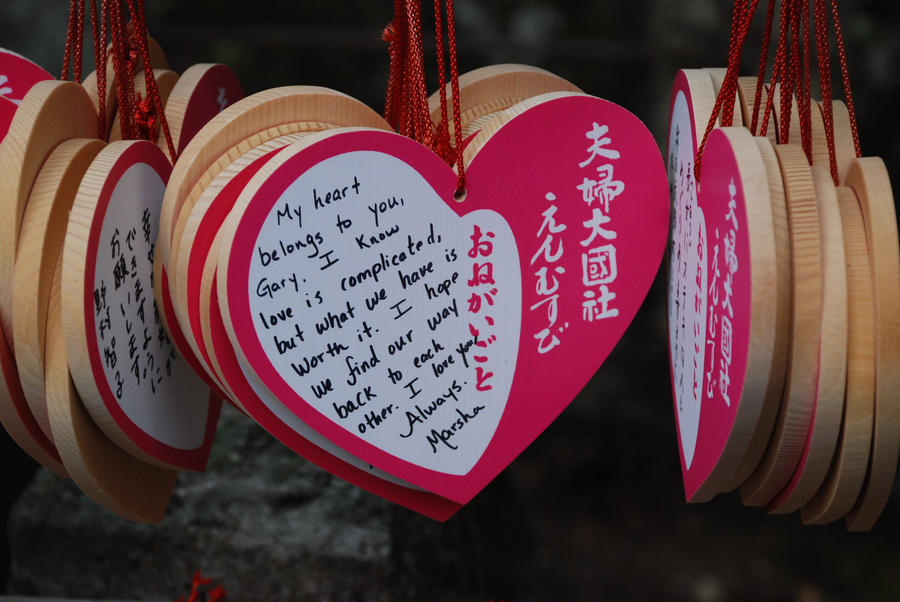 My heart
belongs to you,
Gary. I know
love is complicated,
but what we have is
worth it. I hope
we find our way
back to each
other. I love you
Always.
Marsha
おねがいごと
夫婦大國社
えんむすび
できますように
お願いします。
野村智子
夫婦大國社
えんむすび